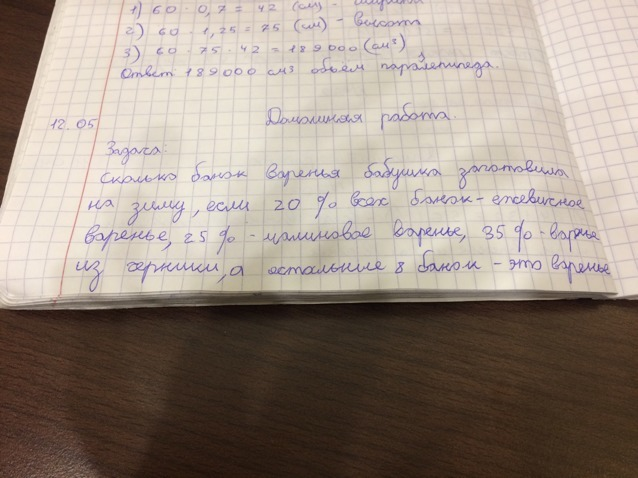 1) 60 · 0,7 = 42 (см) -
2) 60 · 1,25 = 75 (см) - высота
3) 60 · 75 · 42 = 189000 (см³)
Ответ 189000 см³ объём паралепипеда.
12.05 Домашняя работа.
Задача:
Сколько банок варенья бабушка заготовила
на зиму, если 20 % всех банок - ежевичное
варенье, 25 % - малиновое варенье, 35 % - варнье
из черники, а остальние 8 банок - это варенье